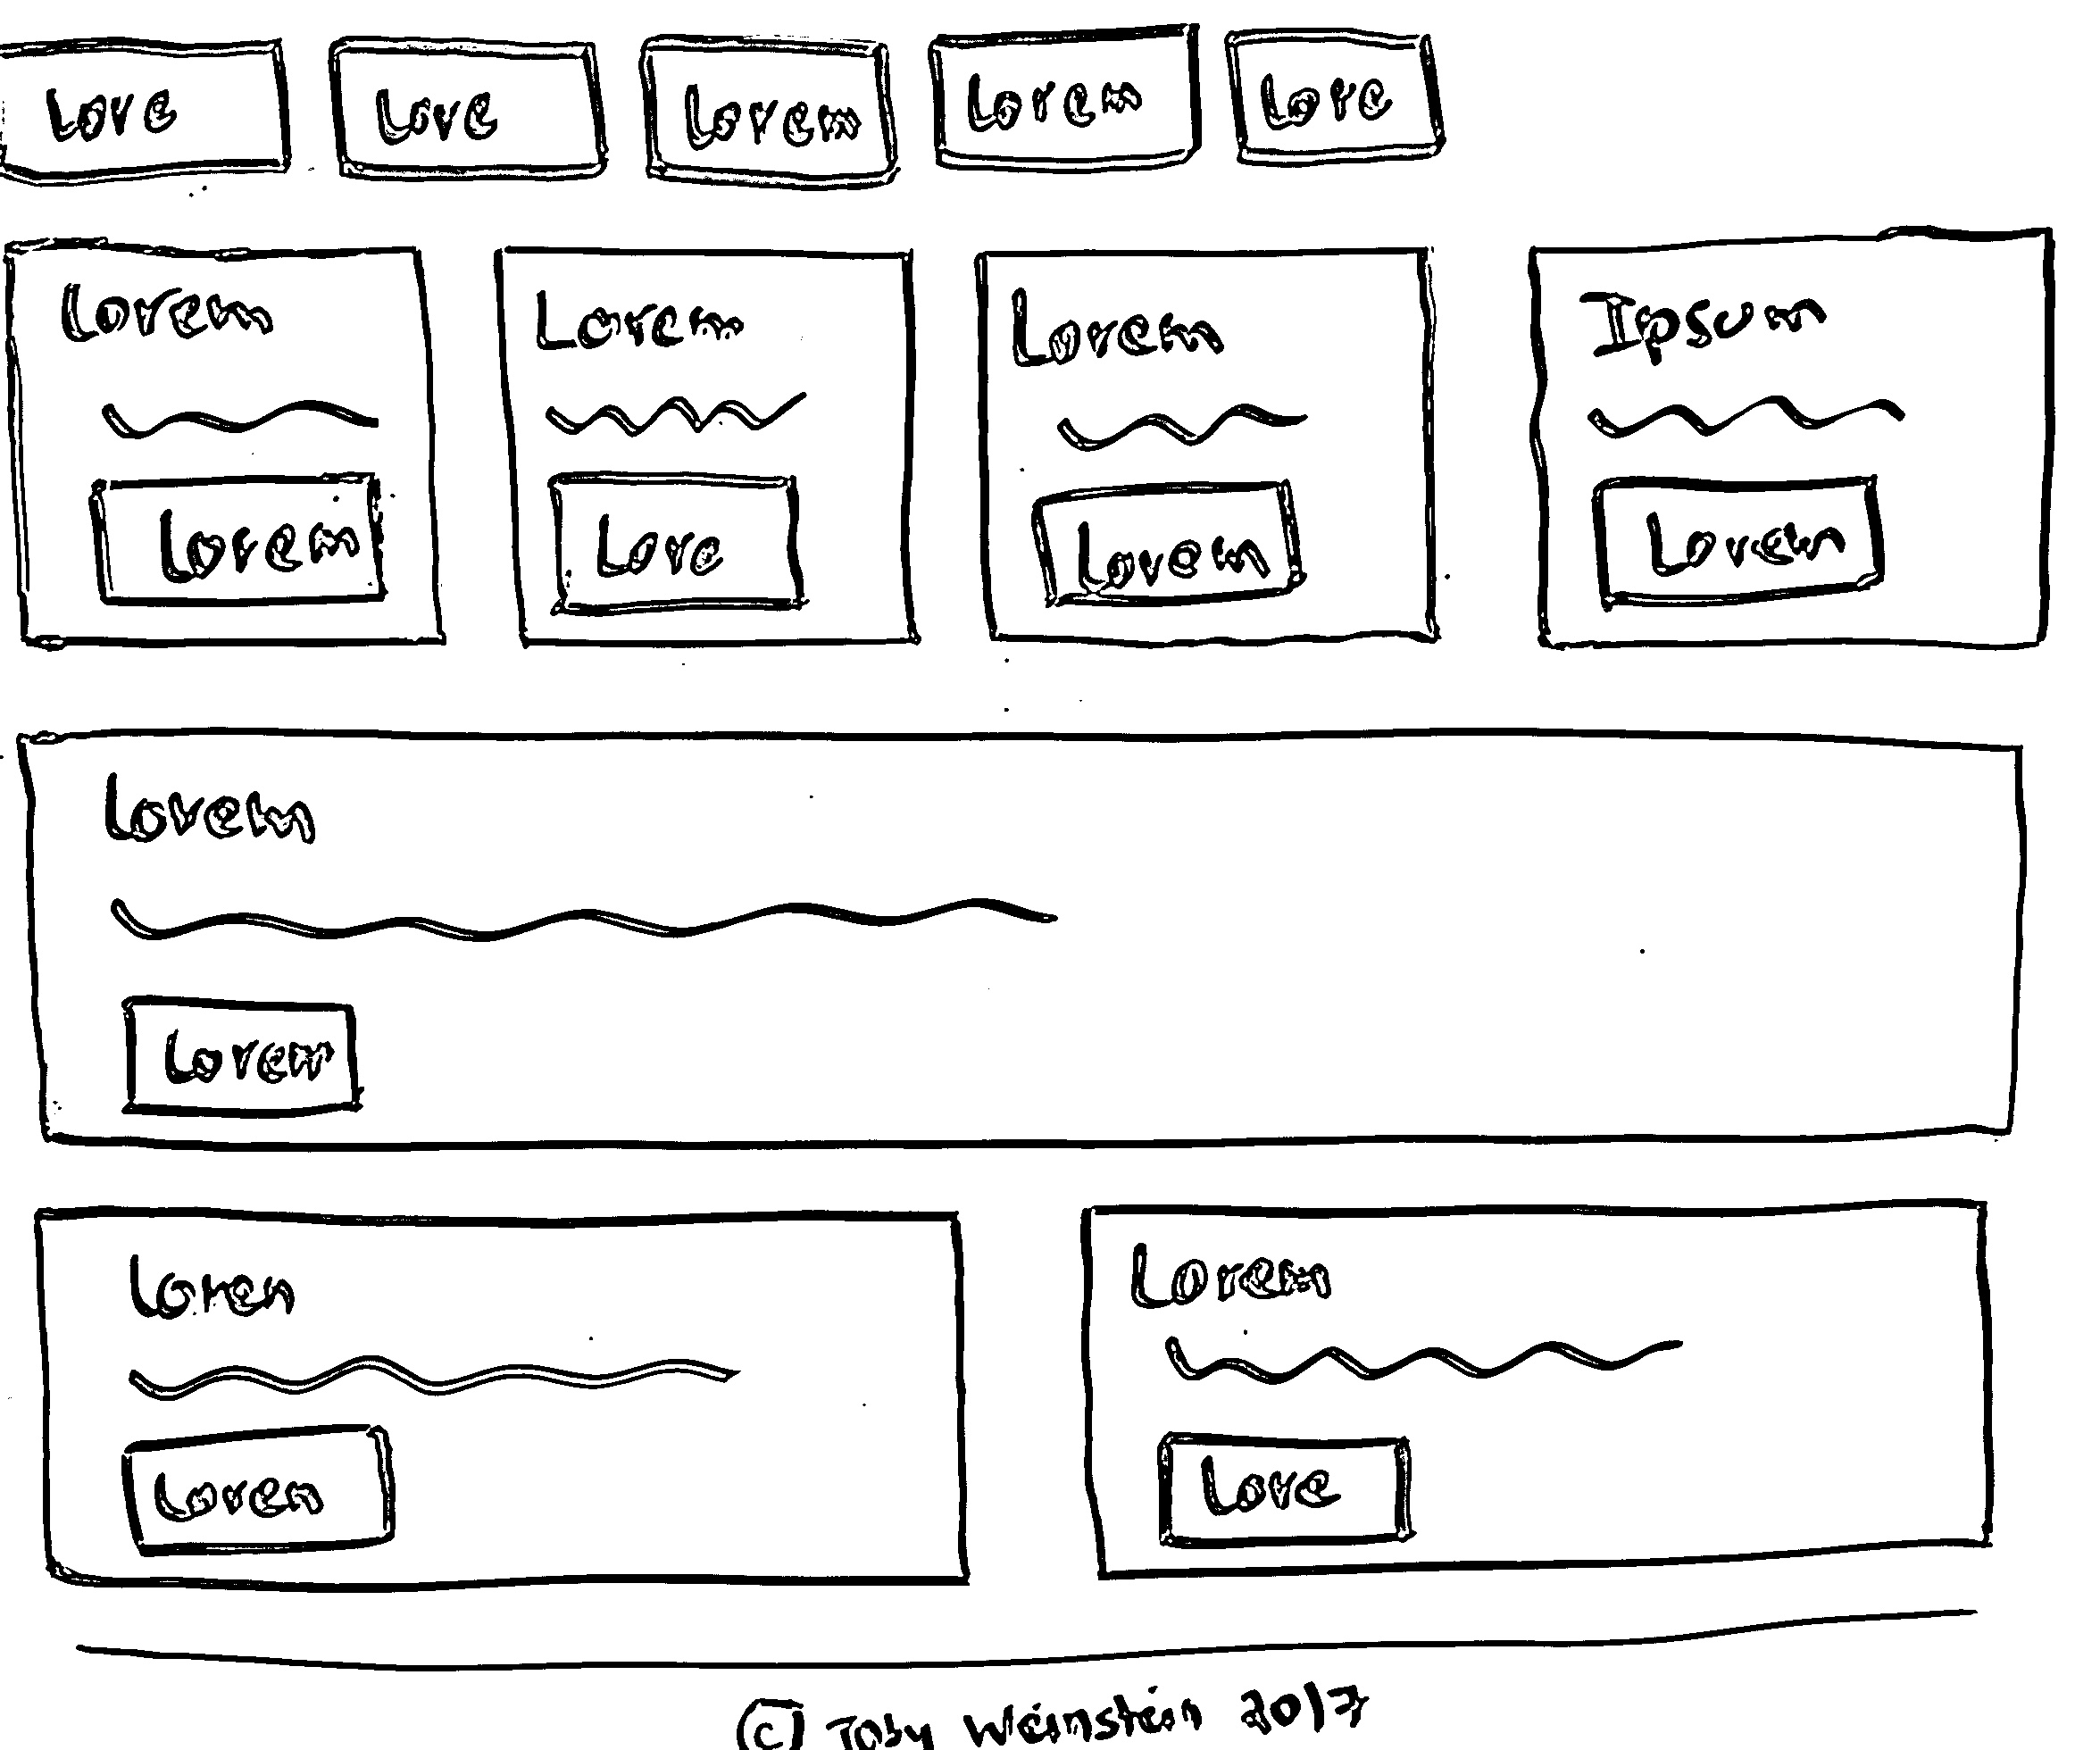 Love Love Lorem Lorem Love
Lorem Lorem Lorem Ipsum
Lorem Love Lorem Lorem
Lorem
Lorem
Loren Lorem
Loren Love
© Toby Weinstein 2017